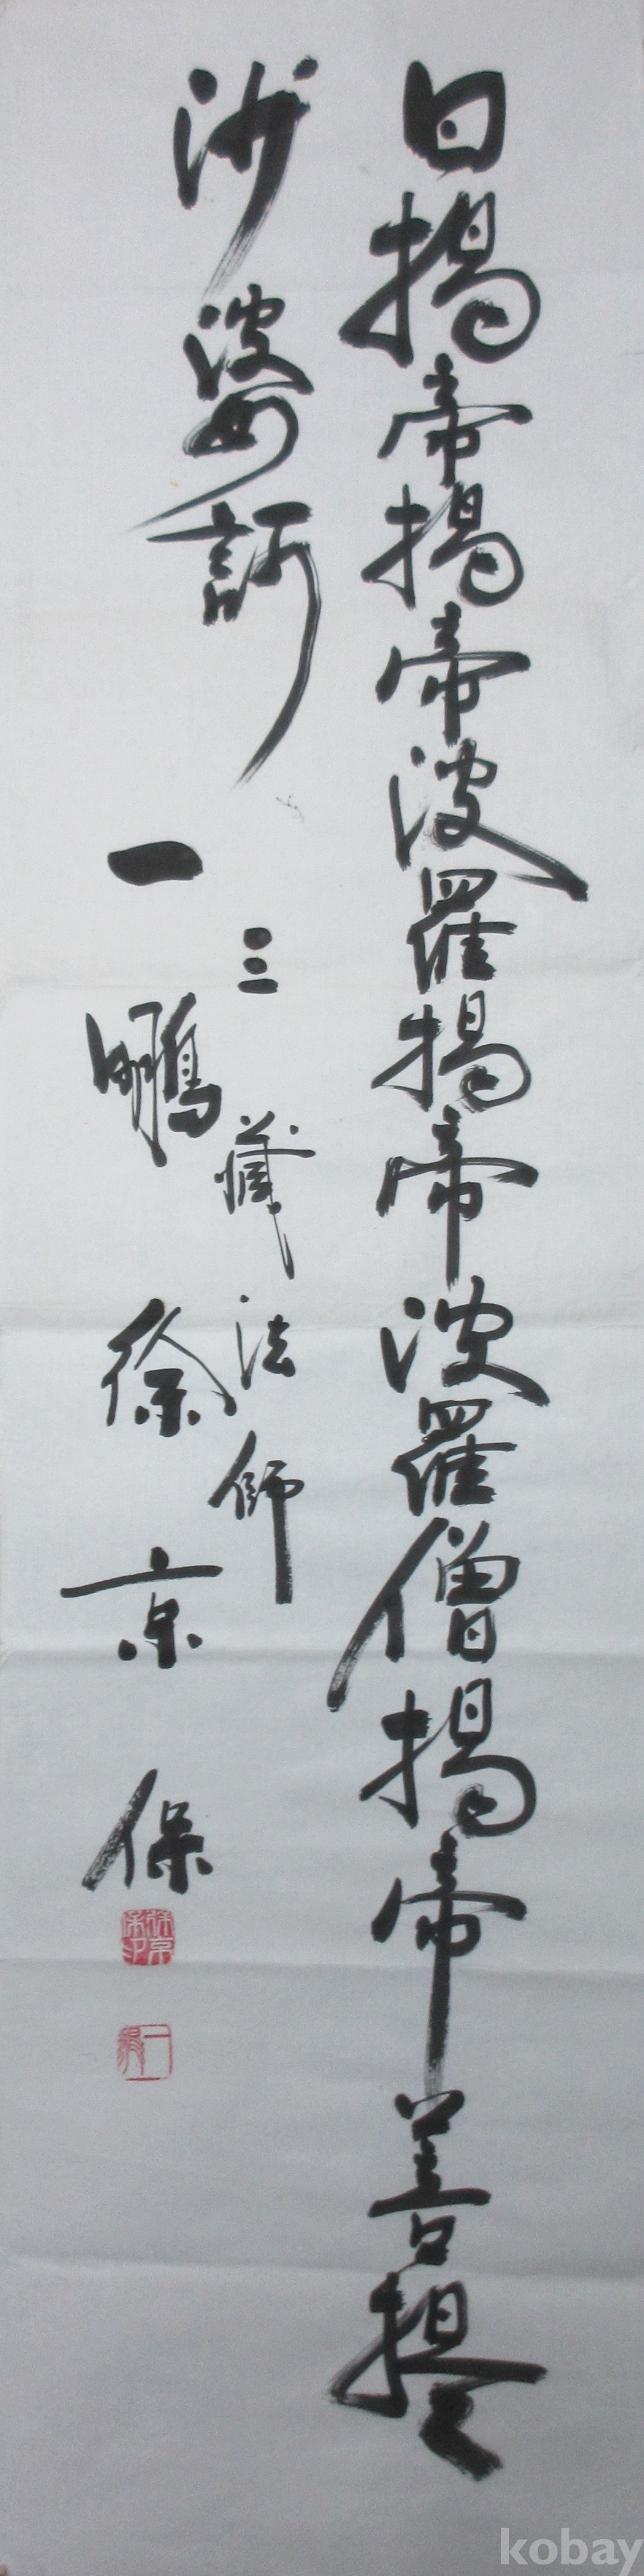 曰揭帝揭帝波羅揭帝波羅僧揭帝菩提
沙婆訶
三藏法師
一鵬 徐京保
徐京保印
一鵬
kobay